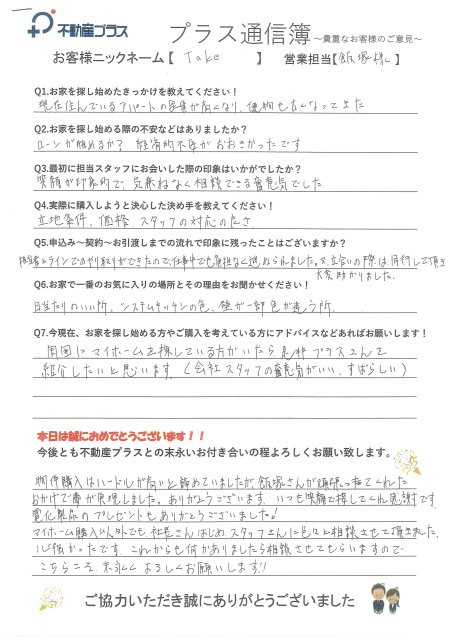 不動産プラス
プラス通信簿 ～貴重なお客様のご意見～
お客様ニックネーム【 Take 】 営業担当【飯塚様】
Q1.お家を探し始めたきっかけを教えてください！
現在住んでいるアパートの家賃が高くなり、使用も古くなってきた
Q2.お家を探し始める際の不安などはありましたか？
ローンが組めるか？ 経済的不安がおおきかったです
Q3.最初に担当スタッフにお会いした際の印象はいかがでしたか？
笑顔が印象的で、気兼ねなく相談できる雰囲気でした
Q4.実際に購入しようと決心した決め手を教えてください！
立地条件、価格 スタッフの対応の良さ
Q5.申込み～契約～お引渡しまでの流れで印象に残ったことはございますか？
担当者とラインでのやり取りができたので、仕事中でも負担なく進められました。又、立会いの際は、同行して頂き
大変助かりました。
Q6.お家で一番のお気に入りの場所とその理由をお聞かせください！
日当たりのいい所、システムキッチンの色、壁が一部色が違う所
Q7.今現在、お家を探し始める方やご購入を考えている方にアドバイスなどあればお願いします！
周囲にマイホームを探している方がいたら是非プラスさんを
紹介したいと思います。（会社 スタッフの雰囲気がいい、すばらしい）
本日は誠におめでとうございます！！
今後とも不動産プラスとの末永いお付き合いの程よろしくお願い致します。
物件購入はハードルが高いと諦めていましたが飯塚さんが頑張ってくれた
おかげで夢が実現しました。ありがとうございます。いつも笑顔で接してくれ感謝です
電化製品のプレゼントもありがとうございました！
マイホーム購入以外でも社長さんはじめスタッフさんに色々と相談させて頂きました
心強かったです。これからも何かありましたら相談させてもらいますので
こちらこそ末永くよろしくお願いします！！
ご協力いただき誠にありがとうございました